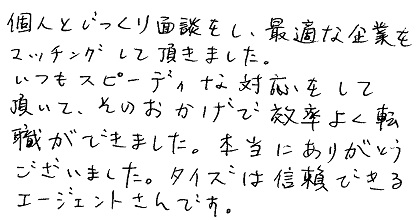 個人とじっくり面談をし、最適な企業を
マッチングして頂きました。
いつもスピーディな対応をして
頂いて、そのおかげで効率よく転
職ができました。本当にありがとう
ございました。タイズは信頼できる
エージェントさんです。